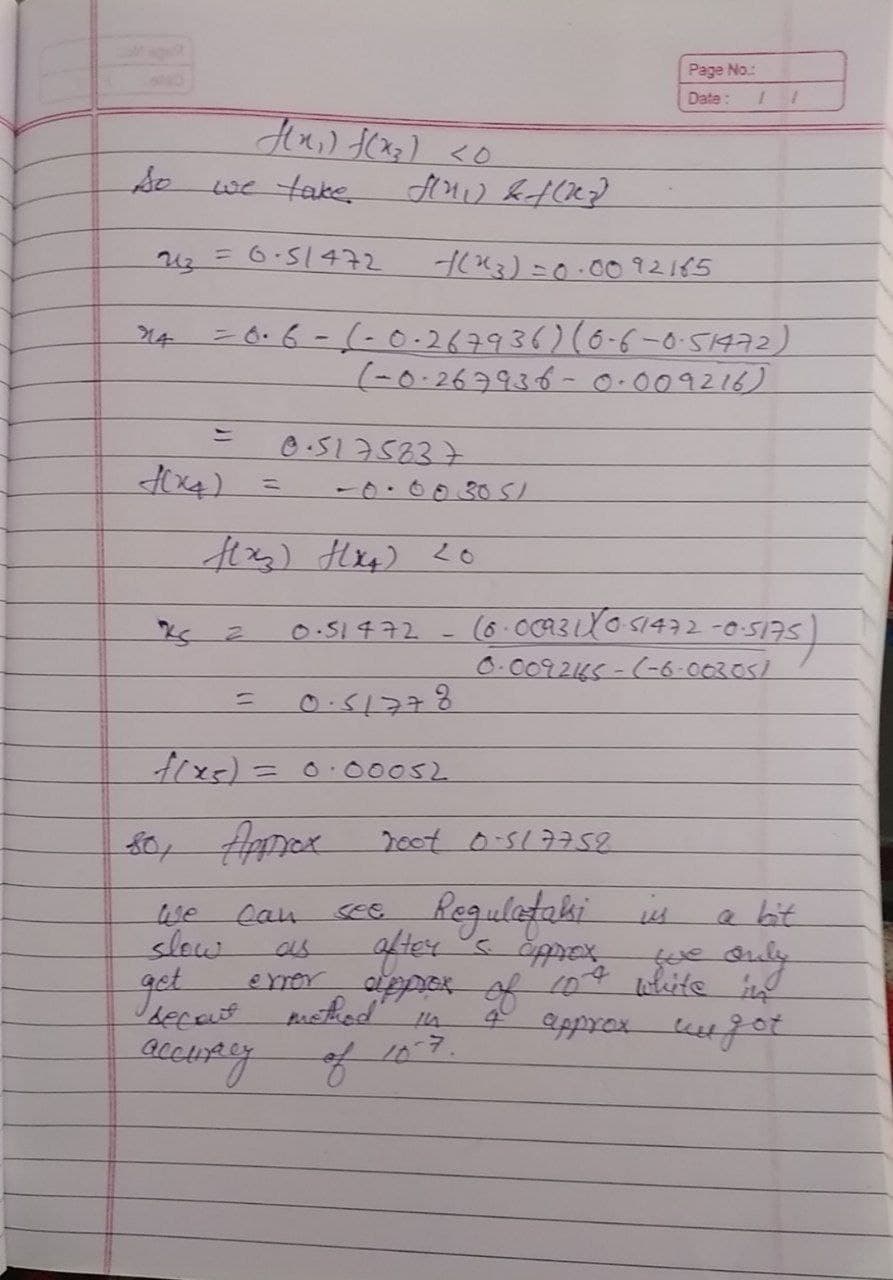 Page No.:
Date : / /
f(x₁) f(x₃) <0
So we take f(x₁) & f(x₃)
x₃ = 0.51472 f(x₃) = 0.0092165
x₄ = 0.6 - (-0.267936)(0.6-0.51472)
(-0.267936 - 0.009216)
= 0.5175837
f(x₄) = -0.003051
f(x₃) f(x₄) <0
x₅ = 0.51472 - (0.00931)(0.51472-0.5175)
0.0092165-(-0.003051
= 0.51778
f(x₅) = 0.00052
so, Approx root 0.517758
We can see Regulafalsi is a bit
slow as after 5 approx we only
get error approx of 10⁻⁴ while in
Secant method in 4 approx we got
accuracy of 10⁻⁷.